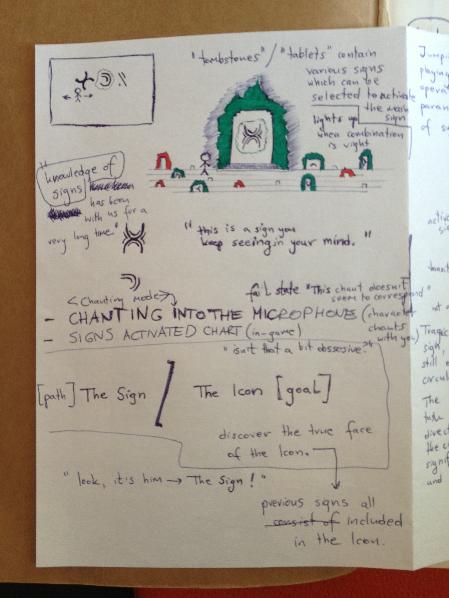 "tombstones" / "tablets" contain
various signs
which can be
selected to activate
the main
sign
lights up
when combination
is right
"knowledge of
signs
has been
with us for a
very long time."
"this is a sign you
keep seeing in your mind."
<Chanting mode>
fail state "This chant doesn't
seem to correspond"
- CHANTING INTO THE MICROPHONE (character
chants
with you)
- SIGNS ACTIVATED CHART (in-game)
"isn't that a bit obsessive?"
[path] The Sign / The Icon [goal]
discover the true face
of the Icon.
"look, it's him → The Sign!"
previous signs all
consist of included
in the Icon.
Jumpi
playing
opera
param
of s
Tragic
sign,
still
circul
The
take
direct
the c
signif
and